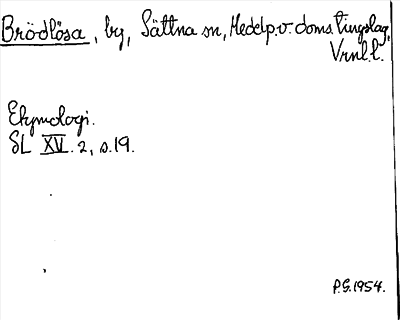 Brödlösa, by, Sättna sn, Medelp. v. doms. tingslag,
Vrnl. l.
Etymologi.
SL XV. 2, s. 19.
P.G. 1954.